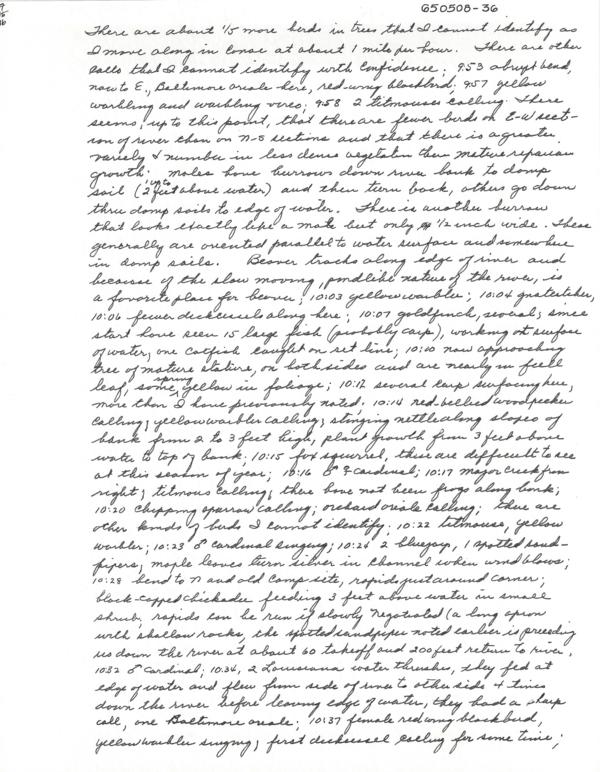 650508-36
There are about 1/5 more birds in trees that I cannot identify as
I move along in canoe at about 1 mile per hour. There are other
calls that I cannot identify with confidence; 9:53 abrupt bend,
now to E., Baltimore oriole here, red-wing blackbird; 9:57 yellow
warbling and warbling vireo; 9:58 2 titmouses calling. There
seems, up to this point, that there are fewer birds on E-W sect-
ion of river than on N-S sections and that there is a greater
variety & number in less dense vegetation than mature reparian
growth. Moles have burrows down river bank to damp
soil (up to 2 feet above water) and then turn back, others go down
thru damp soils to edge of water. There is another burrow
that looks exactly like a mole but only 1/2 inch wide. These
generally are oriented parallel to water surface and somewhere
in damp soils. Beaver tracks along edge of river and
because of the slow moving, pondlike nature of the river, is
a favorite place for beaver; 10:03 yellow warbler; 10:04 gnatcatcher,
10:06 fewer dickcissels along here; 10:07 goldfinch, several; since
start have seen 15 large fish (probably carp), working at surface
of water, one catfish caught on set line; 10:10 now approaching
tree of mature stature, on both sides and are nearly in full
leaf, some spring yellow in foliage; 10:12 several carp surfacing here,
more than I have previously noted; 10:14 red-bellied woodpecker
calling; yellow warbler calling; stinging nettle along slopes of
bank from 2 to 3 feet high, plant growth from 3 feet above
water to top of bank; 10:15 fox squirrel, these are difficult to see
at this season of year; 10:16 ♂ ♀ cardinal; 10:17 major creek from
right; titmous calling; there have not been frogs along bank;
10:20 chipping sparrow calling; orchard oriole calling; there are
other kinds of birds I cannot identify; 10:22 titmouse, yellow
warbler; 10:23 ♂ cardinal singing; 10:24 2 bluejays, 1 spotted sand-
pipers; maple leaves turn silver in channel when wind blows;
10:28 bend to N and old camp site, rapids just around corner;
black-capped chickadee feeding 3 feet above water in small
shrub, rapids can be run if slowly negotiated (a long apron
with shallow rocks, the spotted sandpiper noted earlier is preceding
us down the river at about 60 takeoff and 200 feet return to river,
10:32 ♂ cardinal; 10:34, 2 Louisiana water thrushes, they fed at
edge of water and flew from side of river to other side 4 times
down the river before leaving edge of water, they had a sharp
call, one Baltimore oriole; 10:37 female redwing blackbird,
yellow warbler singing; first dickcissel calling for some time;